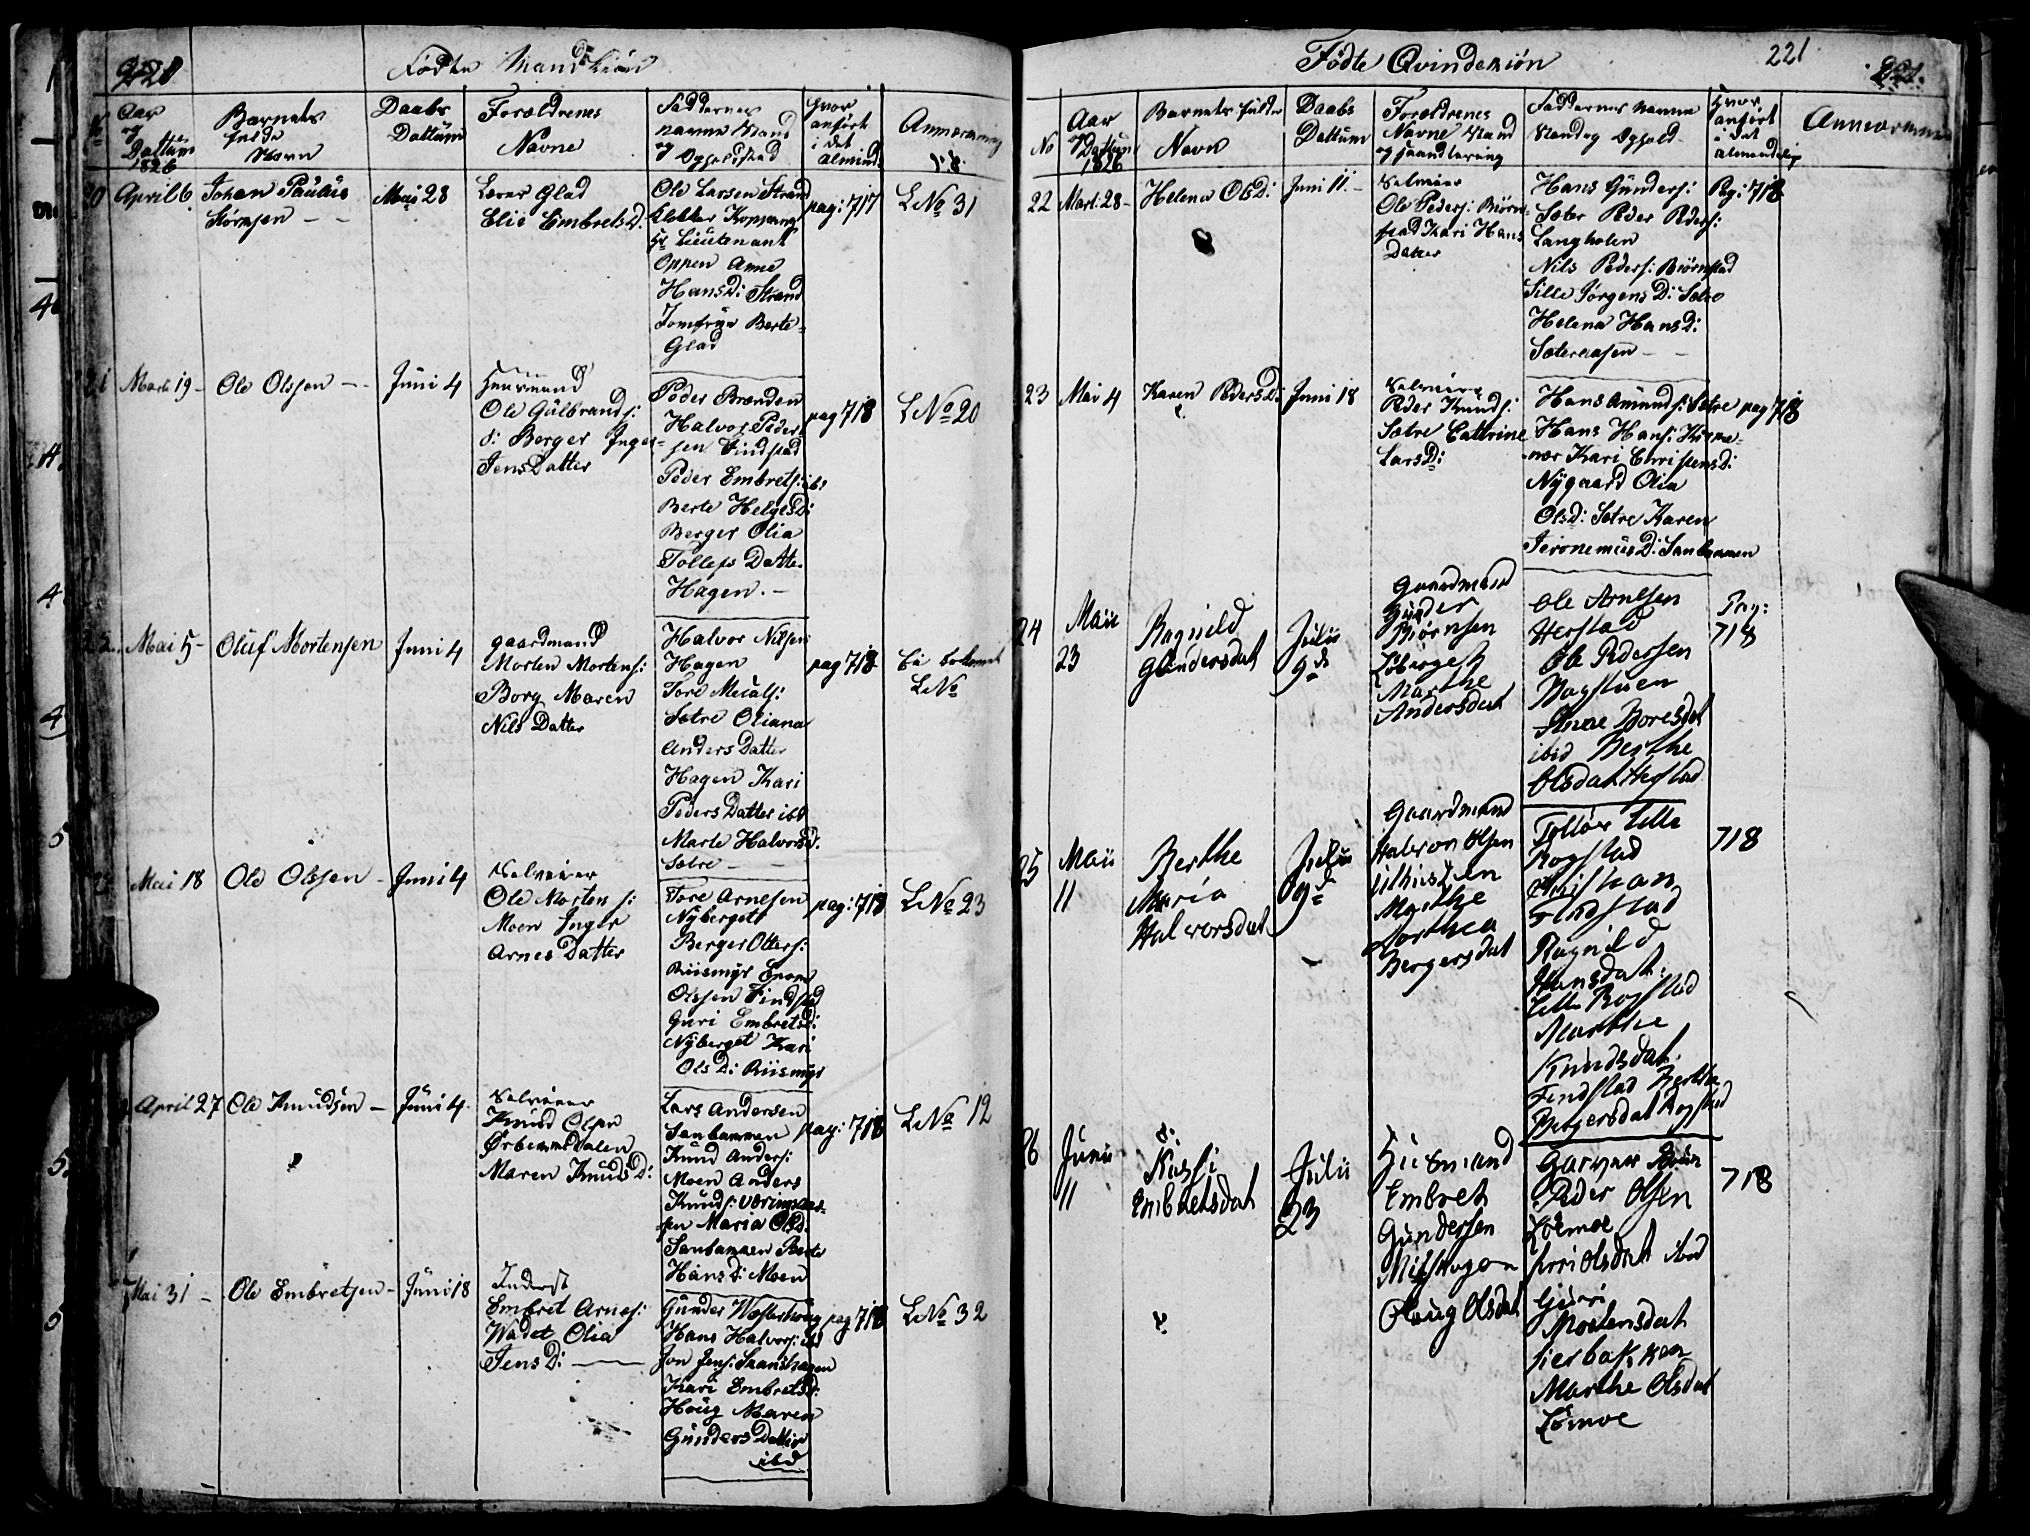 220
Fødte Mandkiøn
No
Aar
og
Dattum
1826
Barnets
fulde
Navn
Daabs
Dattum
Forældrenes
Navne
Faddernes
navne Stand
og Opholdstad
hvor
anført
i det
Almind:
Anmærkning
20
April 6
Johan Paulus
Størmsen
Mai 28
Glad
Elie Embrets D.
Ole Larsen Strand
Klokker Koppang
Hr Lieutenant
Oppen Anne
Hans D: Strand
Jomfrue Berte
Glad
pag: 717
L No 31
21
Marti 19
Ole Olsen
Juni 4
Huusmand
Ole Gulbrands:
Berger Inger
Jens Datter
Peder Brænden
Halvor Peder
sen Findstad
Peder Embrets: ibd
Berte Helges D:
Berger Olia
Tollefs Datter
Hagen
pag 718
L No 20
Mai 5
Oluf Mortensen
Juni 4
gaardmand
Morten Mortens:
Borg Maren
Nils Datter
Halvor Nilsen
Hagen
Tore
Sætre Oliana
Anders Datter
Hagen Kari
Peders Datter ibd
Marte Halvorsd.
Sætre
pag 718
L No
Mai 18
Ole Olsen
Juni 4
Selveier
Ole Mortens:
Moen Inger
Arnes Datter
Tore Arnesen
Nyberget
Berger Otters:
Riismyr
Olssen Findstad
Guri Embretsd:
Nyberget Kari
Ols D: Riismyr
pag: 718
L No 23
April 27
Ole Knudsen
Juni 4
Selveier
Knud Olsen
Ørbemsdalen
Maren Knuds D:
Lars Andersen
Sanbammen
Knud Anders:
Moen Anders
Knuds:
sen Maria Ols D.
Sanbammen Berte
Hans D: Moen
pag: 718
L No 12
Mai 31
Ole Embretsen
Juni 18
Inderst
Embret Arnes:
Wadet Olia
Jens D:
Gunder Westerhoug
Hans Halvors: ibd
Jon Jens:
Kari Embretsd:
Houg Maren
Gunders Datter
ibd
pag 718
L No 32
Fødte Qvindekiøn
221
221.
No
Aar
og Dattum
1826
Barnets fulde
Navn
Daabs
Dattum
Forældrenes
Navne Stand
og Haandtering
Faddernes navne
Stand og Ophold
hvor
anført
i det
almindelige
Anmærkning
22
Mart: 28
Helena Ols D:
Juni 11
Selveier
Ole Peders: Biørn
stad Kari Hans
Datter
Hans Gunders:
Sæter Peder Peders:
Langholen
Nils Peders: Biørnstad
Sille Jørgens D: Sætre
Helena Hans D:
Sæteraasen
Pag: 718
23
Mai 4
Karen Peders D:
Juni 18
Selveier
Peder Knuds:
Sætre Cathrine
Lars D:
Hans Amunds: Sætre
Hans Hans:
Kari Christens D:
Nygaard Olia
Ols D: Sætre Karen
Jeronemus D: Sanbammen
pag 718
24
Maii
23
Ragnild
Gundersdat
Julii
9de
Gaardmand
Gunder
Biørnsen
Marthe
Andersdat
Ole Arnesen
Herstad
Ole Pedersen
Bagstuen
ibid Berthe
Olsdat Herstad
Pag:
718
25
Maii
11
Berthe
Maria
Halvorsdat
Julii
9de
Gaardmand
Halvor Olsen
Marthe
Dorthea
Bergersdat
Lille
Rogstad
Findstad
Ragnild
Hansdat
Lille Rogstad
Marthe
Knudsdat
Findstad Berthe
Bergersdat Rogstad
718
26
Junii
11
Embretsdat
Julii
23
Huusmand
Embret
Gundersen
Olsdat
Peder Olsen
Lømoe
Kari Olsdat ibid
Guri
Mortensdat
Marthe Olsdat
Lømoe
718